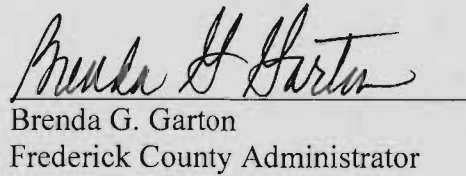 Brenda G Garton
Brenda G. Garton
Frederick County Administrator